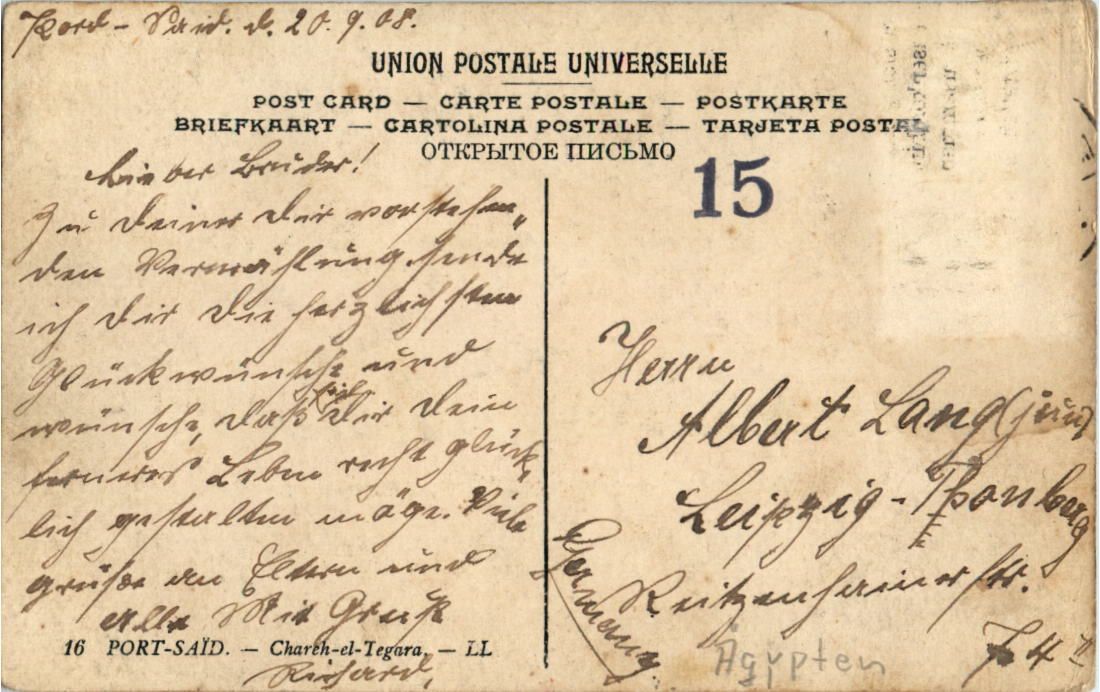 Pord-Said. d. 20.9.08.
UNION POSTALE UNIVERSELLE
POST CARD — CARTE POSTALE — POSTKARTE
BRIEFKAART — CARTOLINA POSTALE — TARJETA POSTAL
ОТКРЫТОЕ ПИСЬМО
15
Lieber Bruder!
Zu deiner dir vorstehen„
den Vermählung sende
ich dir die herzlichsten
Glückwünsche und
wünsche, daß sich dir dein
ferneres Leben recht glück„
lich gestalten möge. Viele
grüße an Eltern und
alle Mit Gruß
Richard.
16 PORT-SAÏD. — Chareh-el-Tegara. — LL
Herrn
Albert Lang (jun)
Leipzig-Thonberg
Reitzenhainerstr.
74 II
Germany.
Ägypten